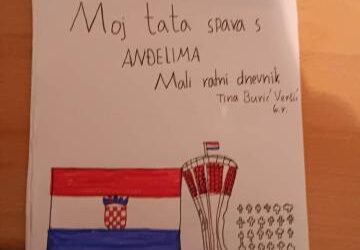 Moj tata spava s
ANĐELIMA
Mali ratni dnevnik
Tina Burić Veršić
6.r.